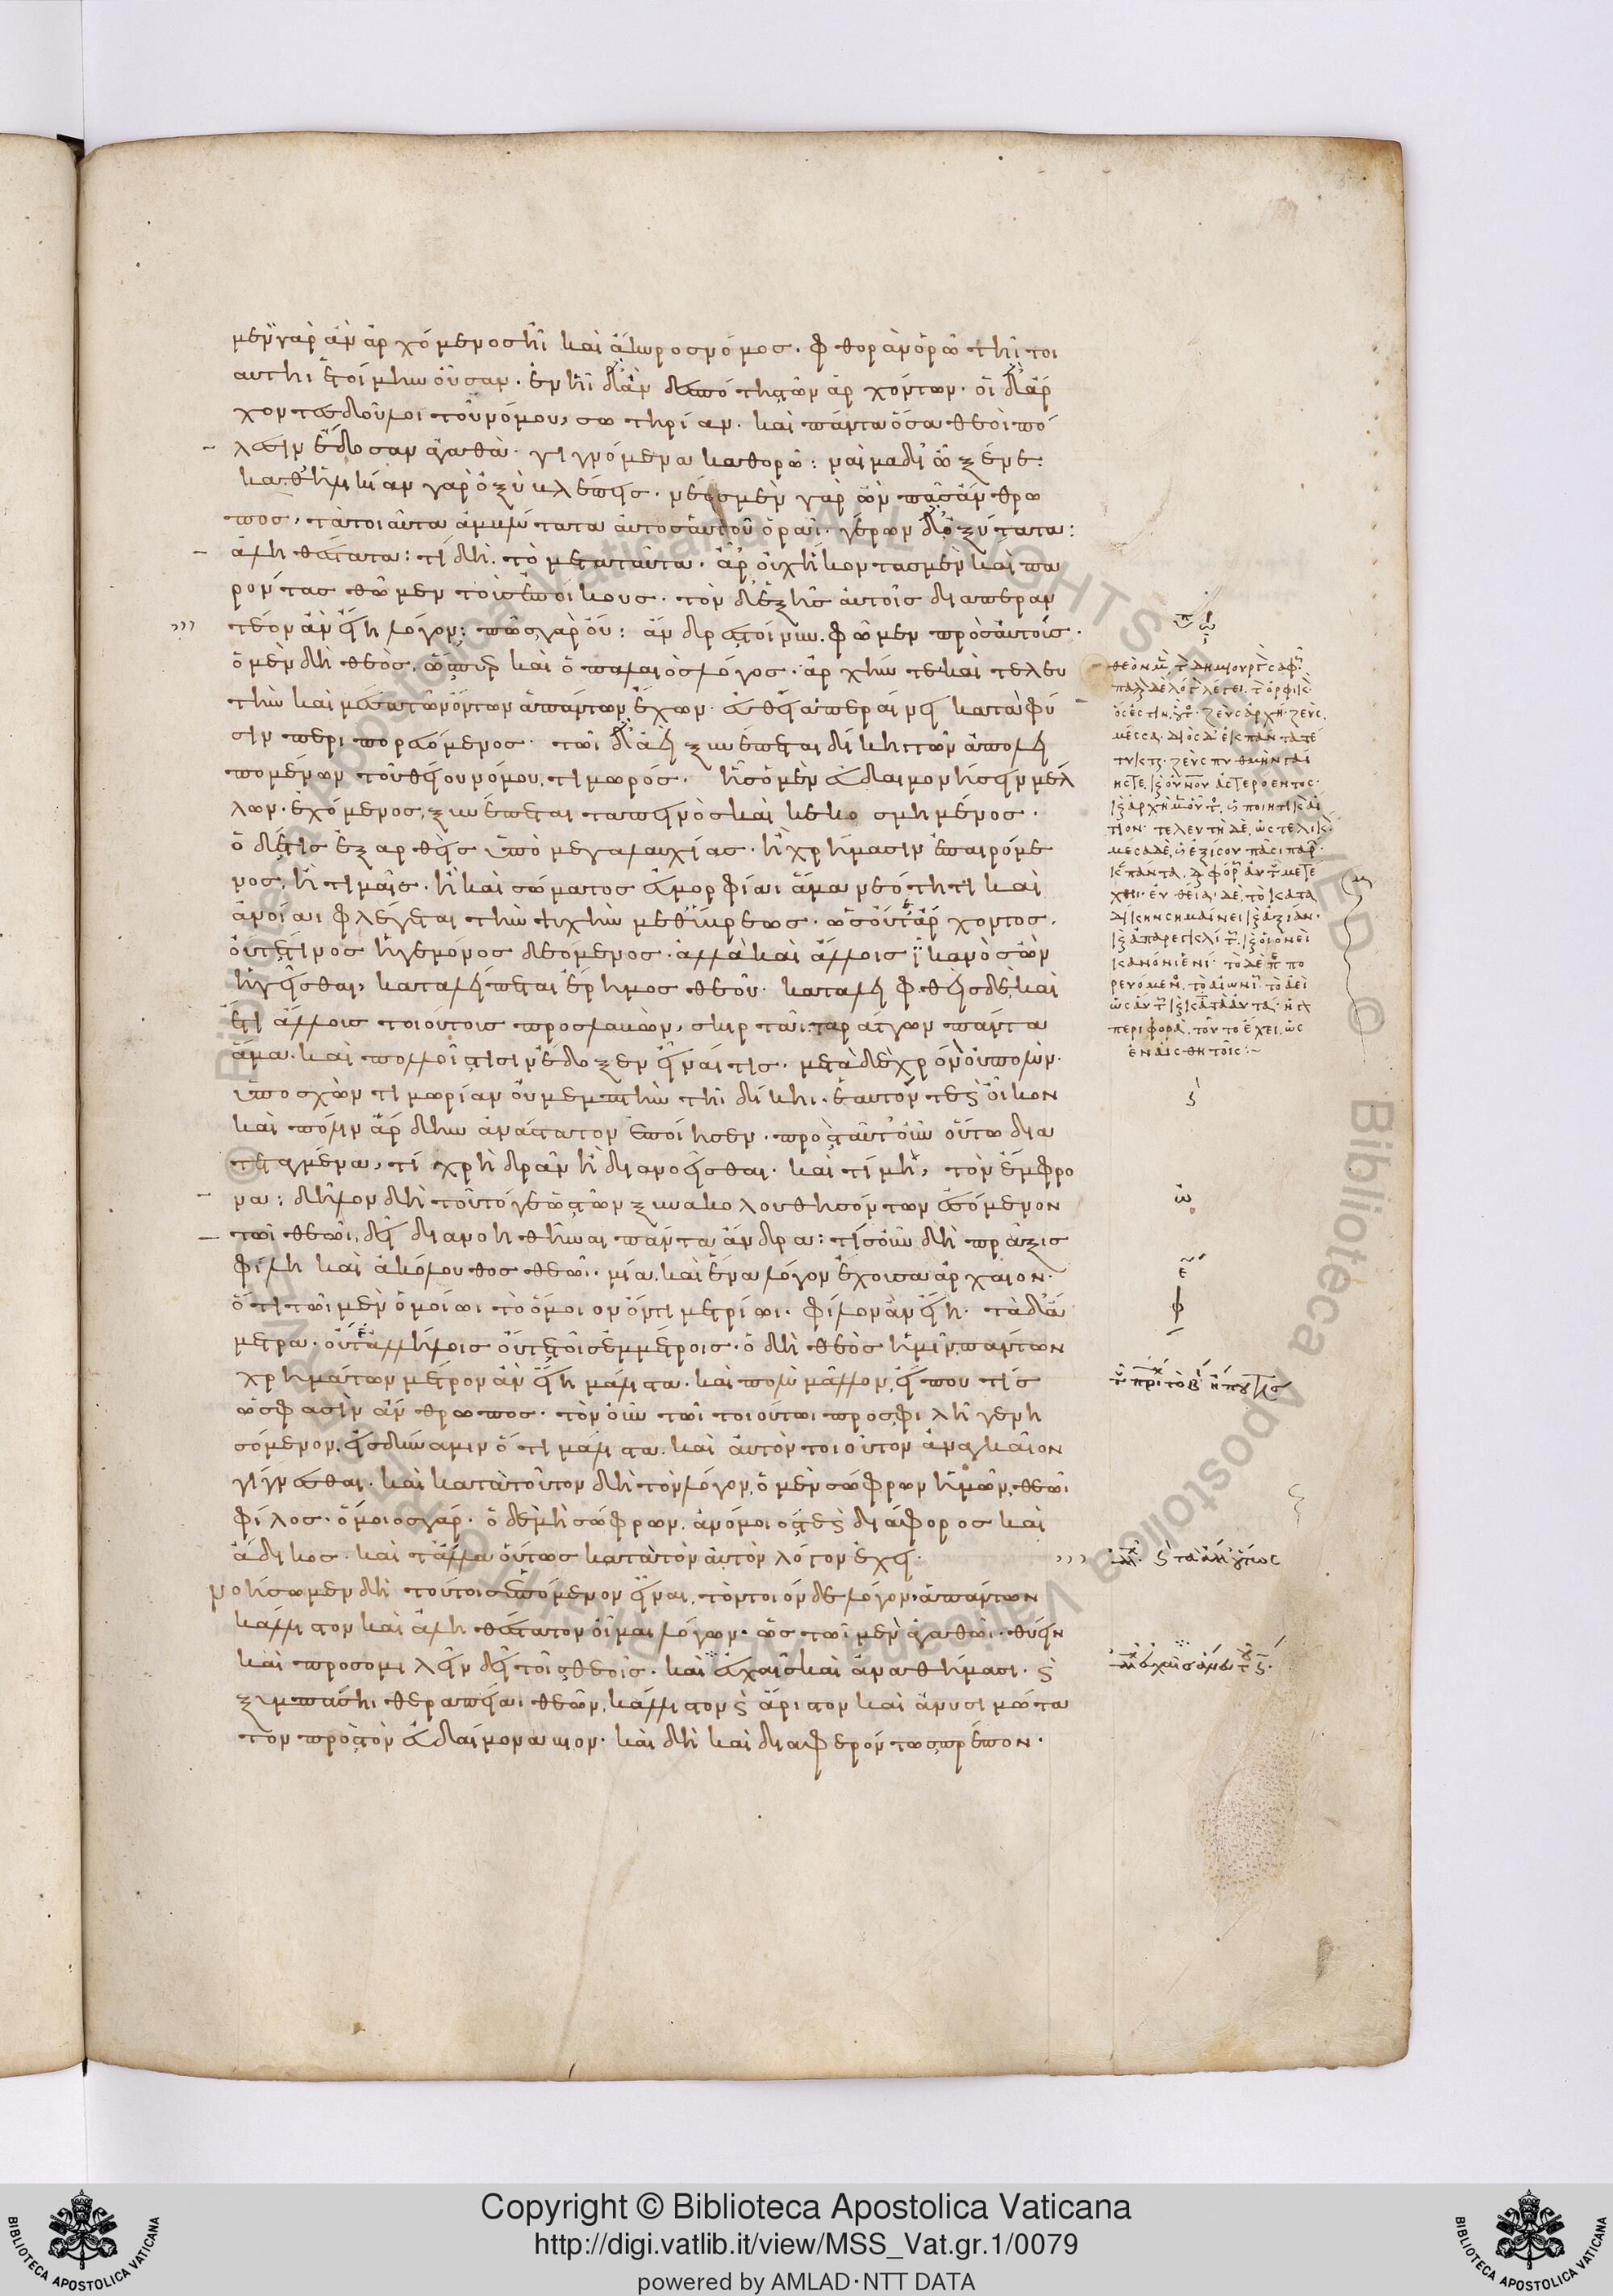 μὲν γὰρ ἂν ἀρχόμενος ἦι καὶ ἄκυρος νόμος· φθορὰν ὁρῶ τῆι τοι
αύτηι ἑτοίμην οὖσαν· ἐν ἧι δ' ἂν δεσπότης τῶν ἀρχόντων· οἱ δ' ἄρ
χοντες δοῦλοι τοῦ νόμου, σωτηρίαν· καὶ πάντα ὅσα θεοὶ πό
λεσιν ἔδοσαν ἀγαθὰ· γιγνόμενα καθορῶ: ναὶ μα δί' ὦ ξένε:
καθ' ἡλικίαν γὰρ ὀξὺ βλέπεις· νέος μὲν γὰρ ὢν πᾶς ἄνθρω
πος, τὰ τοιαῦτα ἀμβλύτατα αὐτὸς αὑτοῦ ὁρᾶι· γέρων δ' ὀξύτατα:
ἀληθέστατα: τί δὴ· τὸ μετὰ ταῦτα· ἆρ' οὐχ ἥκοντας μὲν καὶ πα
ρόντας θῶμεν τοὺς ἐποίκους· τὸν δ' ἑξῆς αὐτοῖς διαπεραν
τέον ἂν εἴη λόγον: πῶς γὰρ οὔ: ἄνδρες τοίνυν φῶμεν πρὸς αὐτούς·
ὁ μὲν δὴ θεὸς, ὥσπερ καὶ ὁ παλαιὸς λόγος· ἀρχήν τε καὶ τελευ
τὴν καὶ μέσα τῶν ὄντων ἁπάντων ἔχων· εὐθείαι περαίνει κατὰ φύ
σιν περιπορευόμενος· τῶι δ' ἀεὶ ξυνέπεται δίκη τῶν ἀπολει
πομένων τοῦ θείου νόμου, τιμωρός· ἧς ὁ μὲν εὐδαιμονήσειν μέλ
λων· ἐχόμενος, ξυνέπεται ταπεινὸς καὶ κεκοσμημένος·
ὁ δέ τις ἐξαρθεὶς ὑπὸ μεγαλαυχίας· ἢ χρήμασιν ἐπαιρόμε
νος, ἢ τιμαῖς· ἢ καὶ σώματος εὐμορφίαι ἅμα νεότητι καὶ
ἀνοίαι φλέγεται τὴν ψυχὴν μεθ' ὕβρεως· ὡς οὔτε ἄρχοντος,
οὔτε τινὸς ἡγεμόνος δεόμενος· ἀλλὰ καὶ ἄλλοις ἱκανὸς ὢν
ἡγεῖσθαι, καταλείπεται ἔρημος θεοῦ· καταλειφθεὶς δὲ, καὶ
ἔτι ἄλλους τοιούτους προσλαβὼν, σκιρτᾶι ταράττων πάντα
ἅμα· καὶ πολλοῖς τισιν ἔδοξεν εἶναί τις· μετὰ δὲ χρόνον οὐ πολὺν·
ὑποσχὼν τιμωρίαν οὐ μεμπτὴν τῆι δίκηι· ἑαυτόν τε καὶ οἶκον
καὶ πόλιν ἄρδην ἀνάστατον ἐποίησεν· πρὸς ταῦτ' οὖν οὕτω δια
τεταγμένα, τί χρὴ δρᾶν ἢ διανοεῖσθαι· καὶ τί μὴ, τὸν ἔμφρο
να: δῆλον δὴ τοῦτό γε ὡς τῶν ξυνακολουθησόντων ἐσόμενον
τῶι θεῶι, δεῖ διανοηθῆναι πάντα ἄνδρα: τίς οὖν δὴ πρᾶξις
φίλη καὶ ἀκόλουθος θεῶι· μία, καὶ ἕνα λόγον ἔχουσα ἀρχαῖον·
ὅτι τῶι μὲν ὁμοίωι τὸ ὅμοιον ὄντι μετρίωι· φίλον ἂν εἴη· τὰ δ' ἄ
μετρα· οὔτε ἀλλήλοις οὔτε τοῖς ἐμμέτροις· ὁ δὴ θεὸς ἡμῖν, πάντων
χρημάτων μέτρον ἂν εἴη μάλιστα· καὶ πολὺ μᾶλλον, ἤ πού τίς
ὥς φασιν ἄνθρωπος· τὸν οὖν τῶι τοιούτωι προσφιλῆ γενη
σόμενον, εἰς δύναμιν ὅτι μάλιστα καὶ αὐτὸν τοιοῦτον ἀναγκαῖον
γίγνεσθαι· καὶ κατὰ τοῦτον δὴ τὸν λόγον, ὁ μὲν σώφρων ἡμῶν, θεῶι
φίλος· ὅμοιος γάρ· ὁ δὲ μὴ σώφρων, ἀνόμοιός τε καὶ διάφορος καὶ
ἄδικος· καὶ τὰ ἄλλα οὕτως κατὰ τὸν αὐτὸν λόγον ἔχει·
νοήσωμεν δὴ τούτοις ἑπόμενον εἶναι, τὸν τοιόνδε λόγον, ἁπάντων
κάλλιστον καὶ ἀληθέστατον οἶμαι λόγων· ὡς τῶι μὲν ἀγαθῶι· θύειν
καὶ προσομιλεῖν δεῖ τοῖς θεοῖς· καὶ εὐχαῖς καὶ ἀναθήμασι· καὶ
ξυμπάσηι θεραπείαι θεῶν, κάλλιστον καὶ ἄριστον καὶ ἀνυσιμώτα
τον πρὸς τὸν εὐδαίμονα βίον· καὶ δὴ καὶ διαφερόντως πρέπον·
θεὸν μὲν τὸν δημιουργὸν σαφῶς·
παλαιὸν δὲ λόγον λέγει τὸν ὀρφικόν·
ὅς ἐστιν οὗτος· ζεὺς ἀρχή· ζεὺς
μέσσα· διὸς δ' ἐκ πάντα τέ
τυκται· ζεὺς πυθμὴν γαί
ης τε, καὶ οὐρανοῦ ἀστερόεντος·
καὶ ἀρχὴ μὲν οὗτος, ὡς ποιητικὸν αἴ
τιον· τελευτὴ δὲ, ὡς τελικόν·
μέσα δὲ, ὡς ἐξ ἴσου πᾶσι παρών·
κἂν πάντα διαφόρως αὐτοῦ μετέ
χηι· εὐθείαι δὲ, τὸ κατὰ
δίκην σημαίνει καὶ ἀξίαν·
καὶ ἀπαρεγκλίτως, καὶ οἱονεὶ
κανόνι ἑνί· τὸ δὲ περιπο
ρευόμενος, τὸ αἰωνίως· τὸ ἀεὶ
ὡσαύτως καὶ κατὰ τὰ αὐτά· ἡ γὰρ
περιφορὰ, τοῦτο ἔχει, ὡς
ἐν αἰσθητοῖς:~
Copyright © Biblioteca Apostolica Vaticana
http://digi.vatlib.it/view/MSS_Vat.gr.1/0079
powered by AMLAD·NTT DATA
BIBLIOTECA APOSTOLICA VATICANA
BIBLIOTECA APOSTOLICA VATICANA